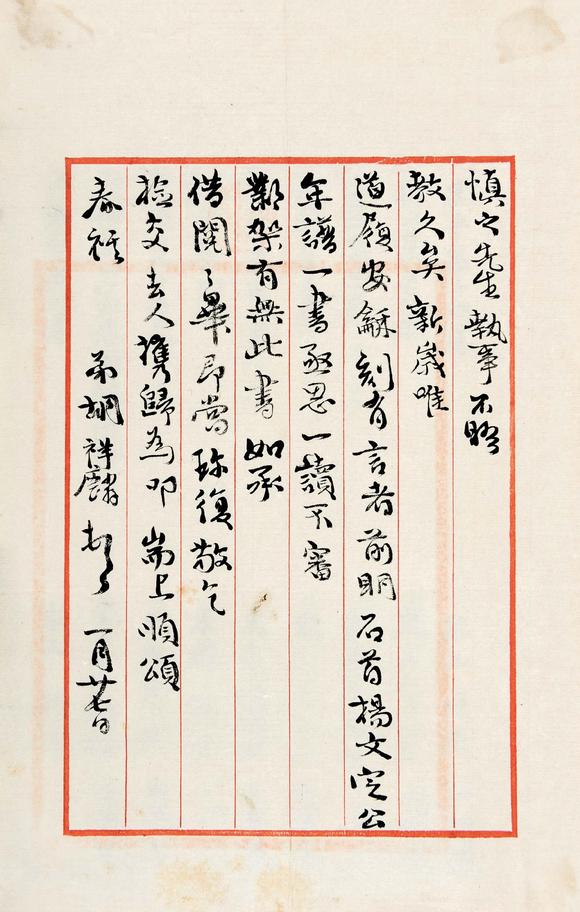 慎之先生執事不晤
教久矣新歲唯
道履安龢刻有言者前明石首楊文定公
年譜一書亟思一讀不審
鄴架有無此書如承
借閱〻畢即當珎復敬乞
檢交去人攜歸為叩耑上順頌
春祺　弟胡祥麟　一月廿七日